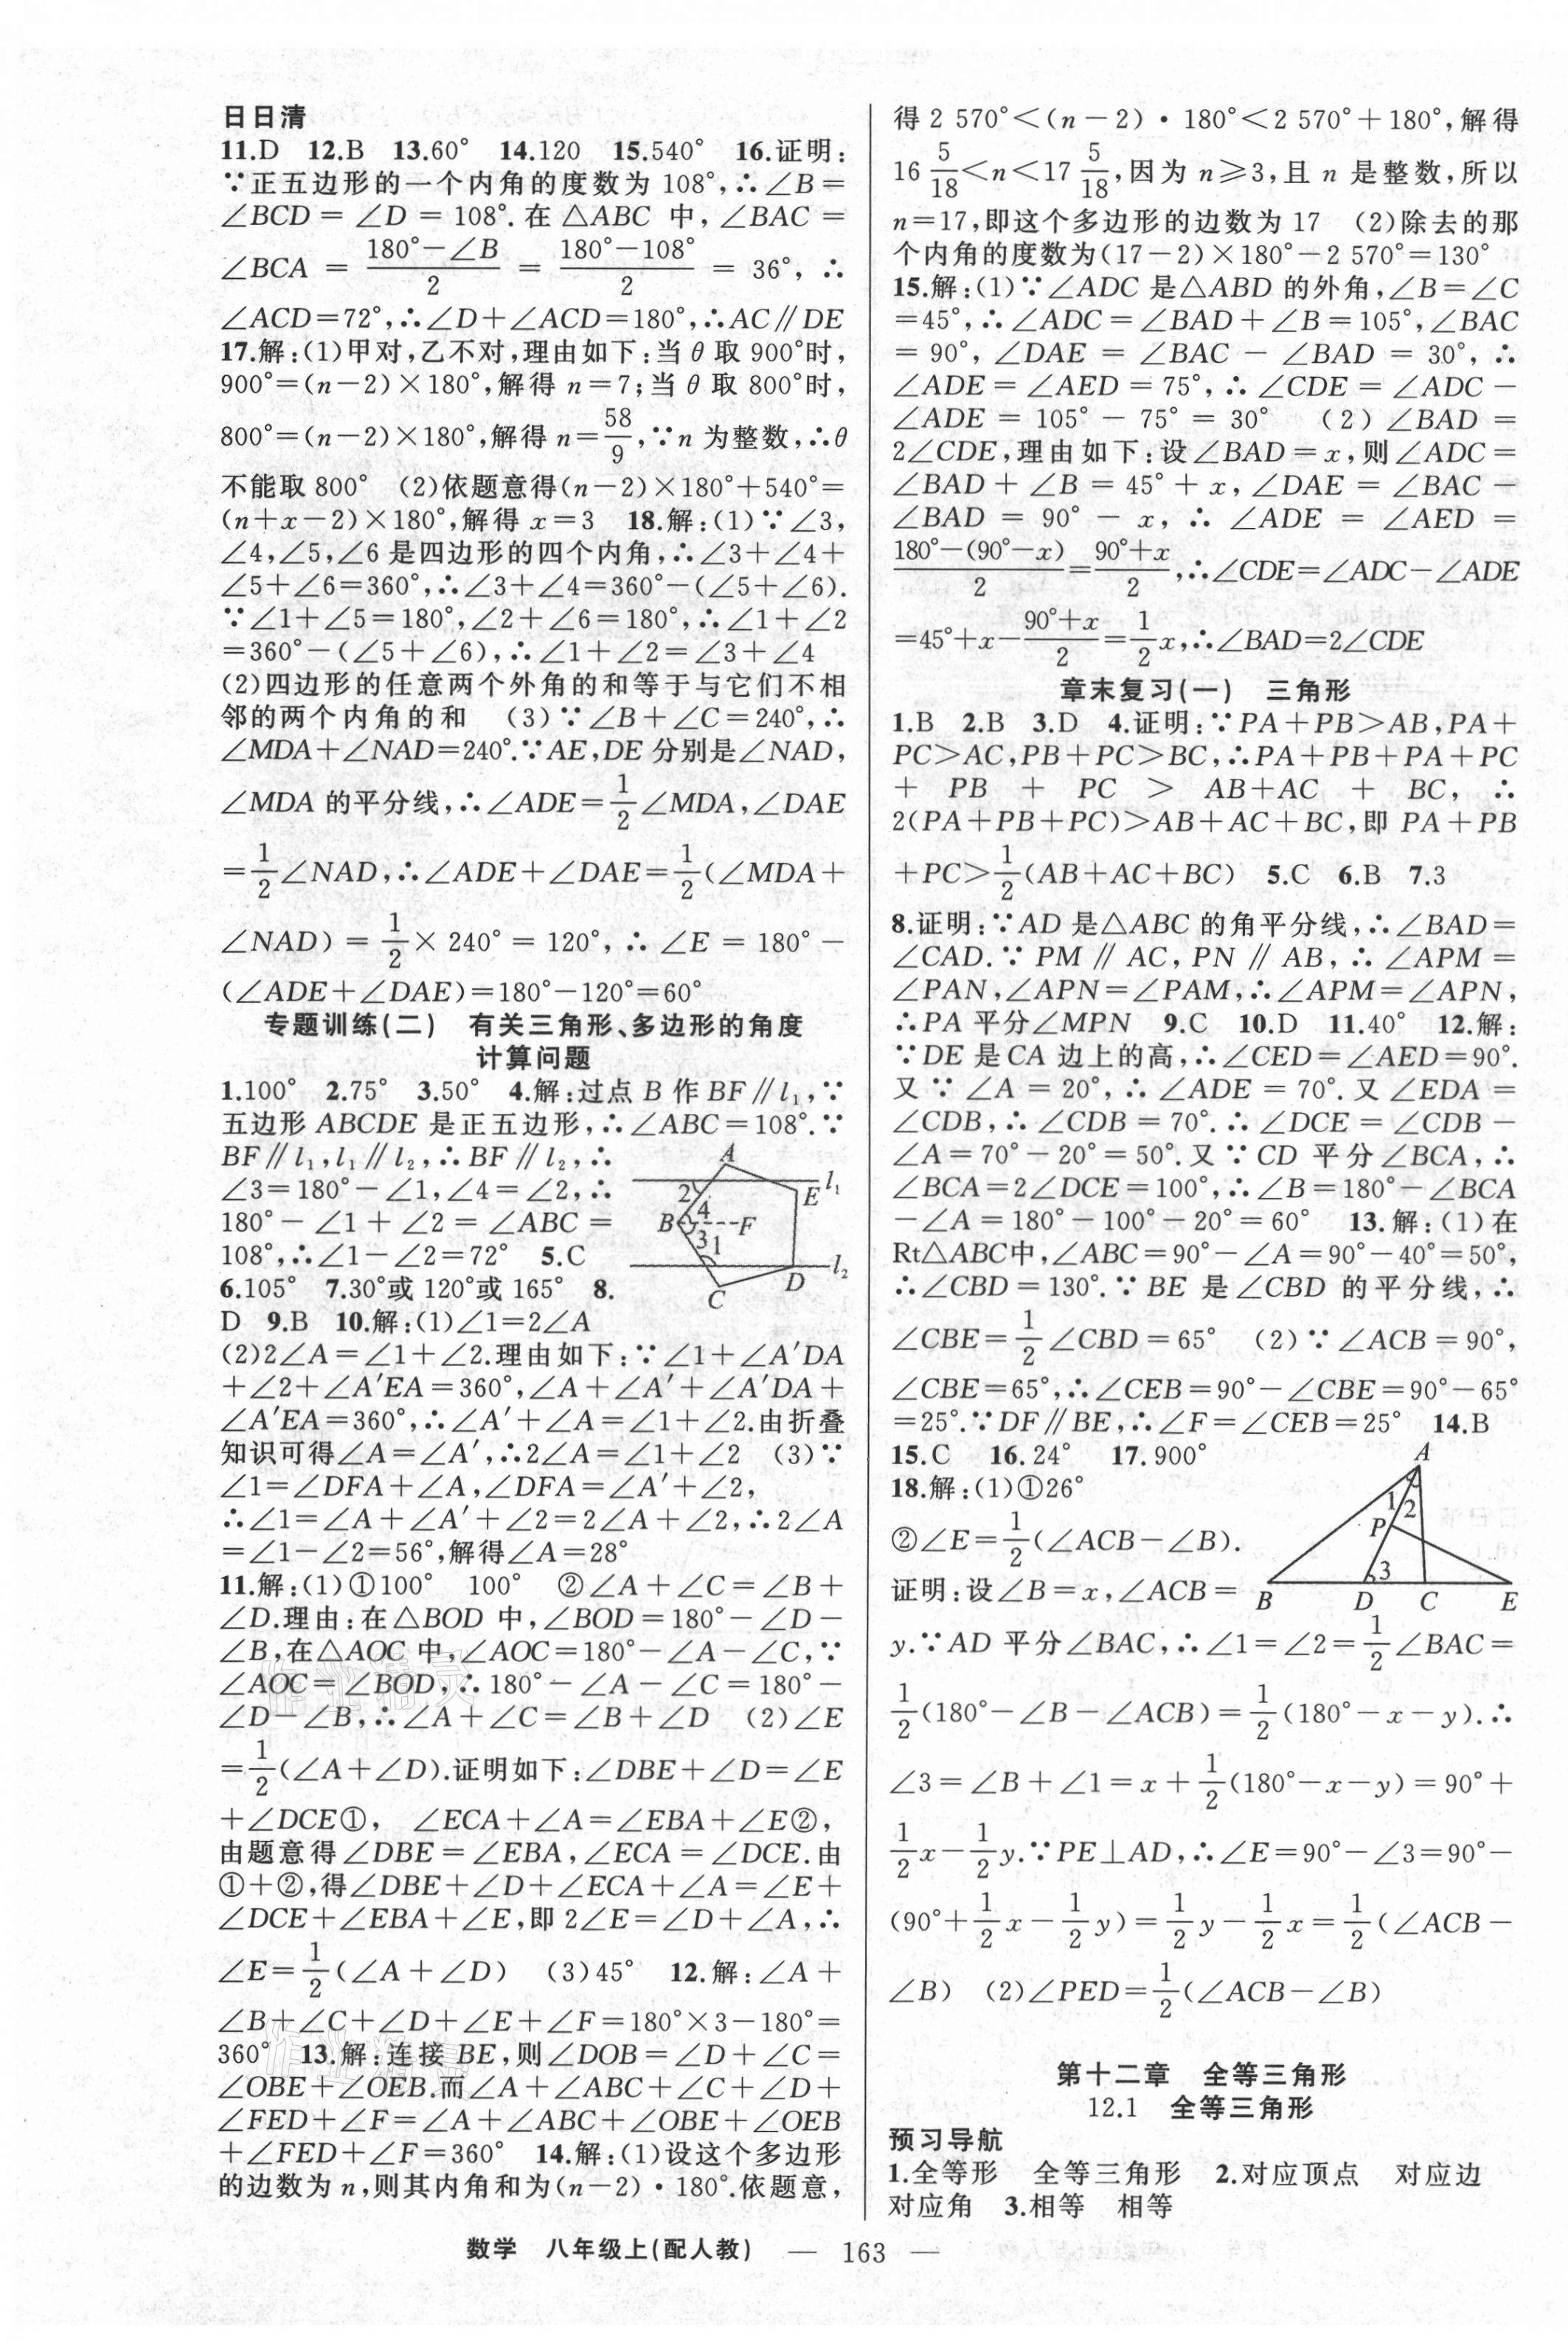 日日清
11.D 12.B 13.60° 14.120 15.540° 16.证明:
∵正五边形的一个内角的度数为 108°,∴∠B=
∠BCD=∠D=108°.在△ABC 中,∠BAC=
∠BCA=(180°-∠B)/2=(180°-108°)/2=36°,∴
∠ACD=72°,∴∠D+∠ACD=180°,∴AC∥DE
17.解:(1)甲对,乙不对,理由如下:当 θ 取 900°时,
900°=(n-2)×180°,解得 n=7;当 θ 取 800°时,
800°=(n-2)×180°,解得 n=58/9,∵n 为整数,∴θ
不能取 800° (2)依题意得(n-2)×180°+540°=
(n+x-2)×180°,解得 x=3 18.解:(1)∵∠3,
∠4,∠5,∠6 是四边形的四个内角,∴∠3+∠4+
∠5+∠6=360°,∴∠3+∠4=360°-(∠5+∠6).
∵∠1+∠5=180°,∠2+∠6=180°,∴∠1+∠2
=360°-(∠5+∠6),∴∠1+∠2=∠3+∠4
(2)四边形的任意两个外角的和等于与它们不相
邻的两个内角的和 (3)∵∠B+∠C=240°,∴
∠MDA+∠NAD=240°.∵AE,DE 分别是∠NAD,
∠MDA 的平分线,∴∠ADE=1/2∠MDA,∠DAE
=1/2∠NAD,∴∠ADE+∠DAE=1/2(∠MDA+
∠NAD)=1/2×240°=120°,∴∠E=180°-
(∠ADE+∠DAE)=180°-120°=60°
专题训练(二) 有关三角形、多边形的角度
计算问题
1.100° 2.75° 3.50° 4.解:过点 B 作 BF∥l₁,∵
五边形 ABCDE 是正五边形,∴∠ABC=108°.∵
BF∥l₁,l₁∥l₂,∴BF∥l₂,∴
∠3=180°-∠1,∠4=∠2,∴
180°-∠1+∠2=∠ABC=
108°,∴∠1-∠2=72° 5.C
6.105° 7.30°或 120°或 165° 8.
A
l₁
E
2
4
B
F
3
1
l₂
D
C
D 9.B 10.解:(1)∠1=2∠A
(2)2∠A=∠1+∠2.理由如下:∵∠1+∠A′DA
+∠2+∠A′EA=360°,∠A+∠A′+∠A′DA+
∠A′EA=360°,∴∠A′+∠A=∠1+∠2.由折叠
知识可得∠A=∠A′,∴2∠A=∠1+∠2 (3)∵
∠1=∠DFA+∠A,∠DFA=∠A′+∠2,
∴∠1=∠A+∠A′+∠2=2∠A+∠2,∴2∠A
=∠1-∠2=56°,解得∠A=28°
11.解:(1)①100° 100° ②∠A+∠C=∠B+
∠D.理由:在△BOD 中,∠BOD=180°-∠D-
∠B,在△AOC 中,∠AOC=180°-∠A-∠C,∵
∠AOC=∠BOD,∴180°-∠A-∠C=180°-
∠D-∠B,∴∠A+∠C=∠B+∠D (2)∠E
=1/2(∠A+∠D).证明如下:∠DBE+∠D=∠E
+∠DCE①, ∠ECA+∠A=∠EBA+∠E②,
由题意得∠DBE=∠EBA,∠ECA=∠DCE.由
①+②,得∠DBE+∠D+∠ECA+∠A=∠E+
∠DCE+∠EBA+∠E,即 2∠E=∠D+∠A,∴
∠E=1/2(∠A+∠D) (3)45° 12.解:∠A+
∠B+∠C+∠D+∠E+∠F=180°×3-180°=
360° 13.解:连接 BE,则∠DOB=∠D+∠C=
∠OBE+∠OEB.而∠A+∠ABC+∠C+∠D+
∠FED+∠F=∠A+∠ABC+∠OBE+∠OEB
+∠FED+∠F=360° 14.解:(1)设这个多边形
的边数为 n,则其内角和为(n-2)·180°.依题意,
得 2 570°<(n-2)·180°<2 570°+180°,解得
16 5/18<n<17 5/18,因为 n≥3,且 n 是整数,所以
n=17,即这个多边形的边数为 17 (2)除去的那
个内角的度数为(17-2)×180°-2 570°=130°
15.解:(1)∵∠ADC 是△ABD 的外角,∠B=∠C
=45°,∴∠ADC=∠BAD+∠B=105°,∠BAC
=90°,∠DAE=∠BAC-∠BAD=30°,∴
∠ADE=∠AED=75°,∴∠CDE=∠ADC-
∠ADE=105°-75°=30° (2)∠BAD=
2∠CDE,理由如下:设∠BAD=x,则∠ADC=
∠BAD+∠B=45°+x,∠DAE=∠BAC-
∠BAD=90°-x,∴∠ADE=∠AED=
(180°-(90°-x))/2=(90°+x)/2,∴∠CDE=∠ADC-∠ADE
=45°+x-(90°+x)/2=1/2x,∴∠BAD=2∠CDE
章末复习(一) 三角形
1.B 2.B 3.D 4.证明:∵PA+PB>AB,PA+
PC>AC,PB+PC>BC,∴PA+PB+PA+PC
+PB+PC>AB+AC+BC,∴
2(PA+PB+PC)>AB+AC+BC,即 PA+PB
+PC>1/2(AB+AC+BC) 5.C 6.B 7.3
8.证明:∵AD 是△ABC 的角平分线,∴∠BAD=
∠CAD.∵PM∥AC,PN∥AB,∴∠APM=
∠PAN,∠APN=∠PAM,∴∠APM=∠APN,
∴PA 平分∠MPN 9.C 10.D 11.40° 12.解:
∵DE 是 CA 边上的高,∴∠CED=∠AED=90°.
又∵∠A=20°,∴∠ADE=70°.又∠EDA=
∠CDB,∴∠CDB=70°.∴∠DCE=∠CDB-
∠A=70°-20°=50°.又∵CD 平分∠BCA,∴
∠BCA=2∠DCE=100°,∴∠B=180°-∠BCA
-∠A=180°-100°-20°=60° 13.解:(1)在
Rt△ABC中,∠ABC=90°-∠A=90°-40°=50°,
∴∠CBD=130°.∵BE 是∠CBD 的平分线,∴
∠CBE=1/2∠CBD=65° (2)∵∠ACB=90°,
∠CBE=65°,∴∠CEB=90°-∠CBE=90°-65°
=25°.∵DF∥BE,∴∠F=∠CEB=25° 14.B
15.C 16.24° 17.900°
18.解:(1)①26°
②∠E=1/2(∠ACB-∠B).
证明:设∠B=x,∠ACB=
A
1
2
P
3
B
D
C
E
y.∵AD 平分∠BAC,∴∠1=∠2=1/2∠BAC=
1/2(180°-∠B-∠ACB)=1/2(180°-x-y).∴
∠3=∠B+∠1=x+1/2(180°-x-y)=90°+
1/2x-1/2y.∵PE⊥AD,∴∠E=90°-∠3=90°-
(90°+1/2x-1/2y)=1/2y-1/2x=1/2(∠ACB-
∠B) (2)∠PED=1/2(∠ACB-∠B)
第十二章 全等三角形
12.1 全等三角形
预习导航
1.全等形 全等三角形 2.对应顶点 对应边
对应角 3.相等 相等
数学 八年级上(配人教) — 163 —